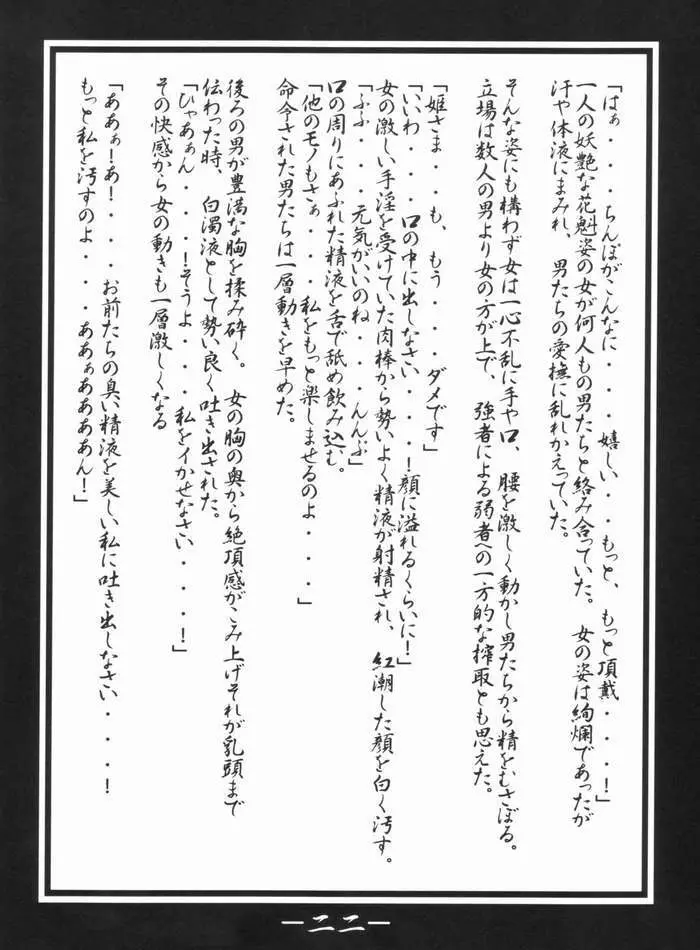 「はぁ・・・ちんぽがこんなに・・・嬉しい・・もっと、もっと頂戴・・・！」
一人の妖艶な花魁姿の女が何人もの男たちと絡み合っていた。　女の姿は絢爛であったが
汗や体液にまみれ、　男たちの愛撫に乱れかえっていた。
そんな姿にも構わず女は一心不乱に手や口、　腰を激しく動かし男たちから精をむさぼる。
立場は数人の男より女の方が上で、　強者による弱者への一方的な搾取とも思えた。
「姫さま・・も、　もう・・・ダメです」
「いいわ・・・口の中に出しなさい・・・！顔に溢れるくらいに！」
女の激しい手淫を受けていた肉棒から勢いよく精液が射精され、　紅潮した顔を白く汚す。
「ふふ・・・元気がいいのね・・・んんぶ」
口の周りにあふれた精液を舌で舐め飲み込む。
「他のモノもさぁ・・・私をもっと楽しませるのよ・・・」
命令された男たちは一層動きを早めた。
後ろの男が豊満な胸を揉み砕く。　女の胸の奥から絶頂感がこみ上げそれが乳頭まで
伝わった時、　白濁液として勢い良く吐き出された。
「ひゃあぁん・・・！そうよ・・・私をイかせなさい・・・！」
その快感から女の動きも一層激しくなる
「ああぁ！あ！・・・お前たちの臭い精液を美しい私に吐き出しなさい・・・！
もっと私を汚すのよ・・・ああぁああああん！」
－二二－